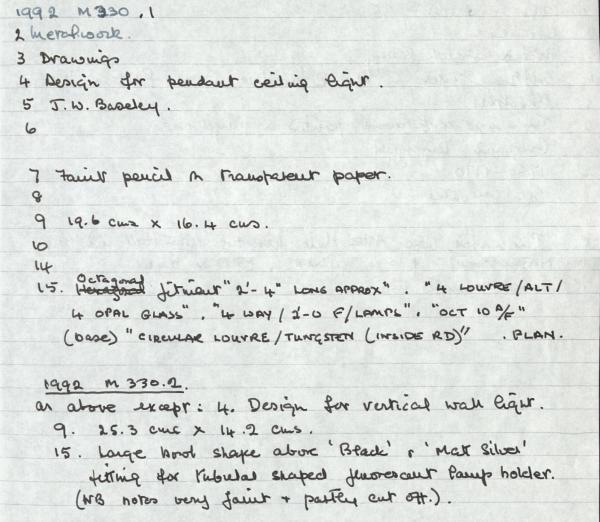 1992 M330.1
2 Metalwork.
3 Drawings
4 Design for pendant ceiling light.
5 J.W. Baseley.
6
7 Faint pencil on transparent paper.
8
9 19.6 cms x 16.4 cms.
10
14
15. Octagonal fitment "2'-4" LONG APPROX". "4 LOUVRE/ALT/
4 OPAL GLASS". "4 WAY / 2'-0 F/LAMPS". "OCT 10 A/F"
(base) "CIRCULAR LOUVRE/TUNGSTEN (INSIDE RD)" . PLAN.
1992 M 330.2.
as above except: 4. Design for vertical wall light.
9. 25.3 cms x 14.2 cms.
15. Large shape above 'Black' & 'Matt Silver'
fitting for tubular shaped fluorescent lamp holder.
(NB notes very faint + partly cut off.).